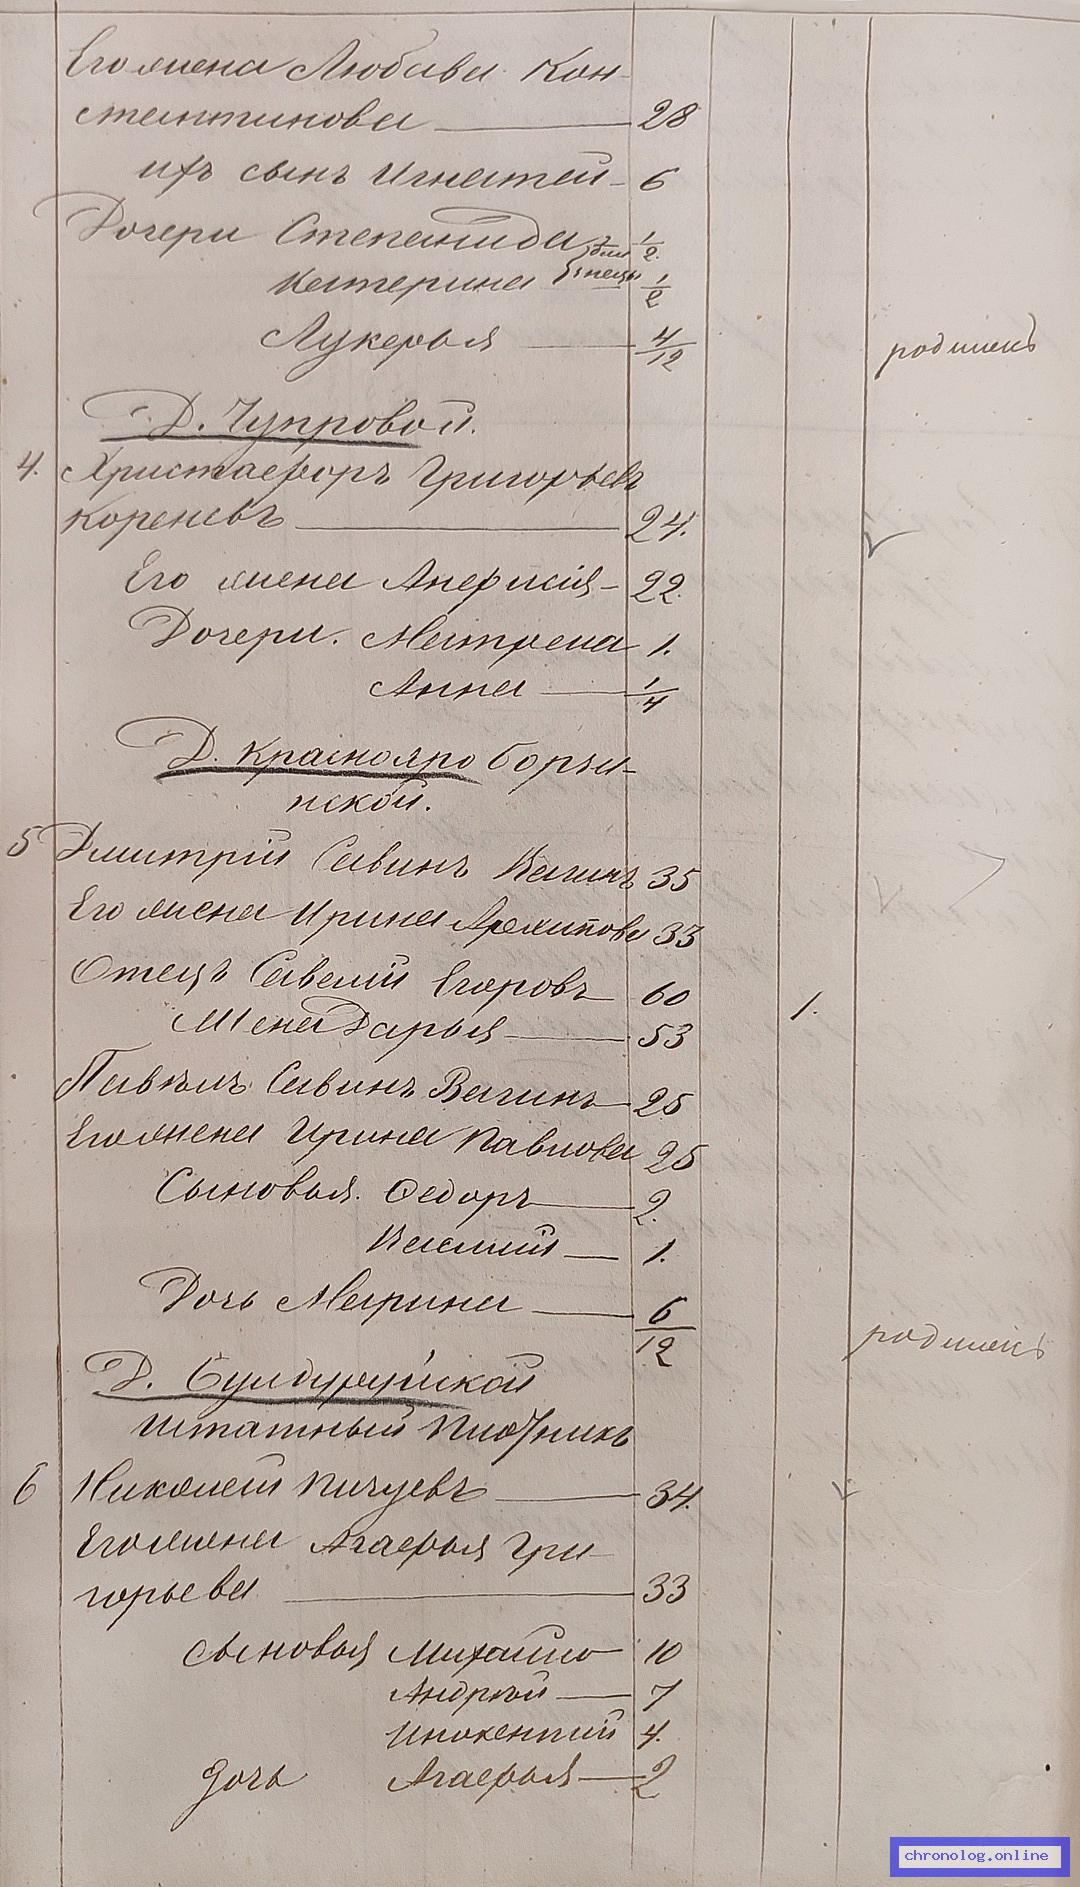 Его жена Любава Кон-
стантинова 28
ихъ сынъ Игнатей 6
Дочери Степанида 1/2
близнецы
Катерина 1/2
Лукерья 4/12 родимецъ
Д. Чупровой.
4. Христафоръ Григорьевъ
Кореневъ 24.
Его жена Анфисія 22
Дочери. Матрена 1.
Анна 1/4
Д. Краснояро Борзи-
нской.
5 Дмитрій Савинъ Вагинъ 35
Его жена Ирина Архипова 33
Отецъ Савелій Егоровъ 60 1.
Жена Дарья 53
Павелъ Савинъ Вагинъ 25
Его жена Ирина Павлова 25
Сыновья. Федоръ 2.
Василій 1.
Дочь Марина 6/12 родимецъ
Д. Булдуруйской
штатный плотникъ
6 Николай Пичуевъ 34.
Его жена Агафья Гри-
горьева 33
сыновья Михайло 10
Андрей 7
Инокентий 4.
дочь Агафья 2
chronolog.online